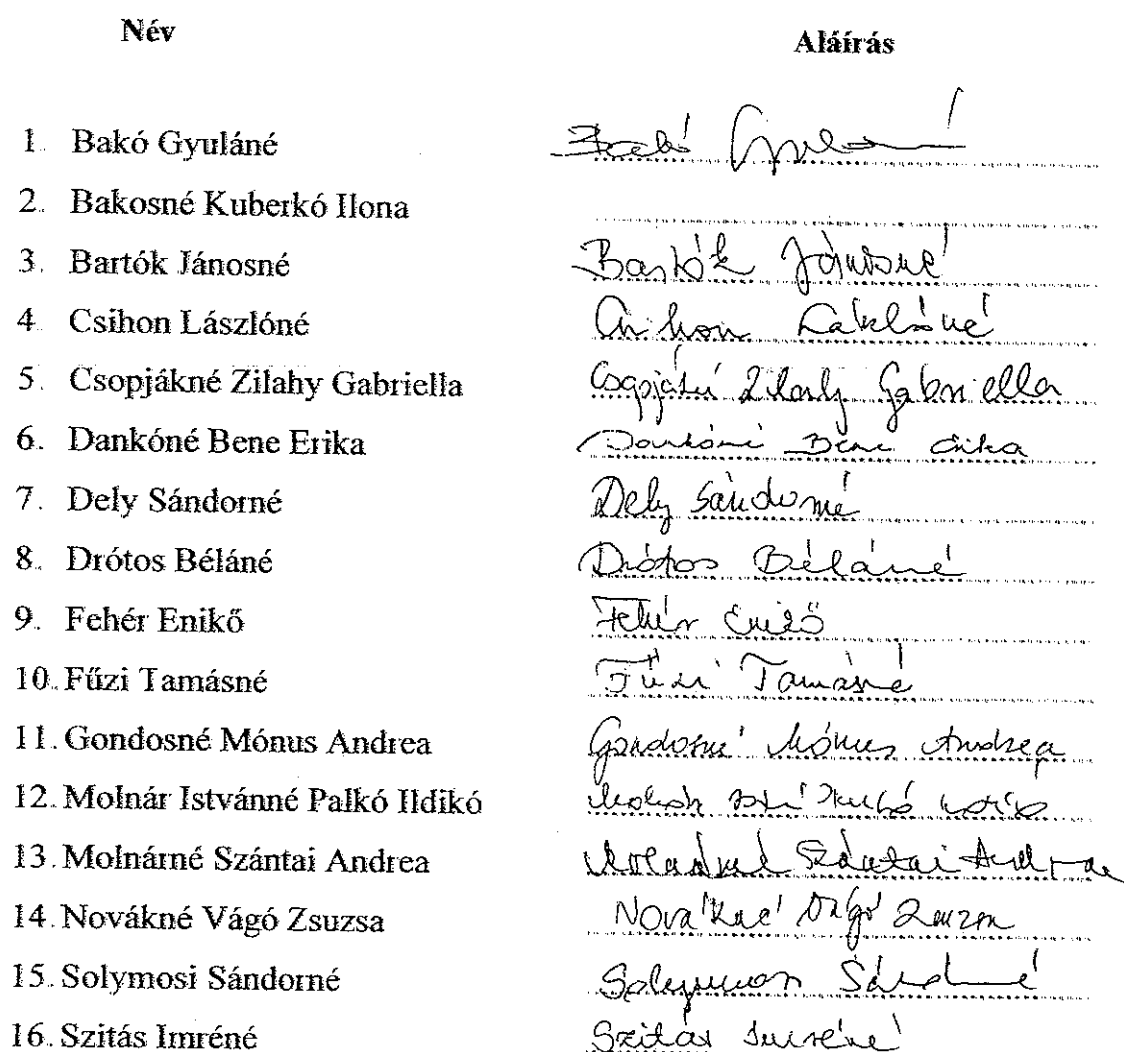 Név Aláírás
1. Bakó Gyuláné Bakó Gyuláné
2. Bakosné Kuberkó Ilona
3. Bartók Jánosné Bartók Jánosné
4. Csihon Lászlóné Csihon Lászlóné
5. Csopjákné Zilahy Gabriella Csopjákné Zilahy Gabriella
6. Dankóné Bene Erika Dankóné Bene Erika
7. Dely Sándorné Dely Sándorné
8. Drótos Béláné Drótos Béláné
9. Fehér Enikő Fehér Enikő
10. Fűzi Tamásné Fűzi Tamásné
11. Gondosné Mónus Andrea Gondosné Mónus Andrea
12. Molnár Istvánné Palkó Ildikó Molnár
13. Molnárné Szántai Andrea Molnárné Szántai Andrea
14. Novákné Vágó Zsuzsa Novákné Vágó Zsuzsa
15. Solymosi Sándorné Solymosi Sándorné
16. Szitás Imréné Szitás Imréné